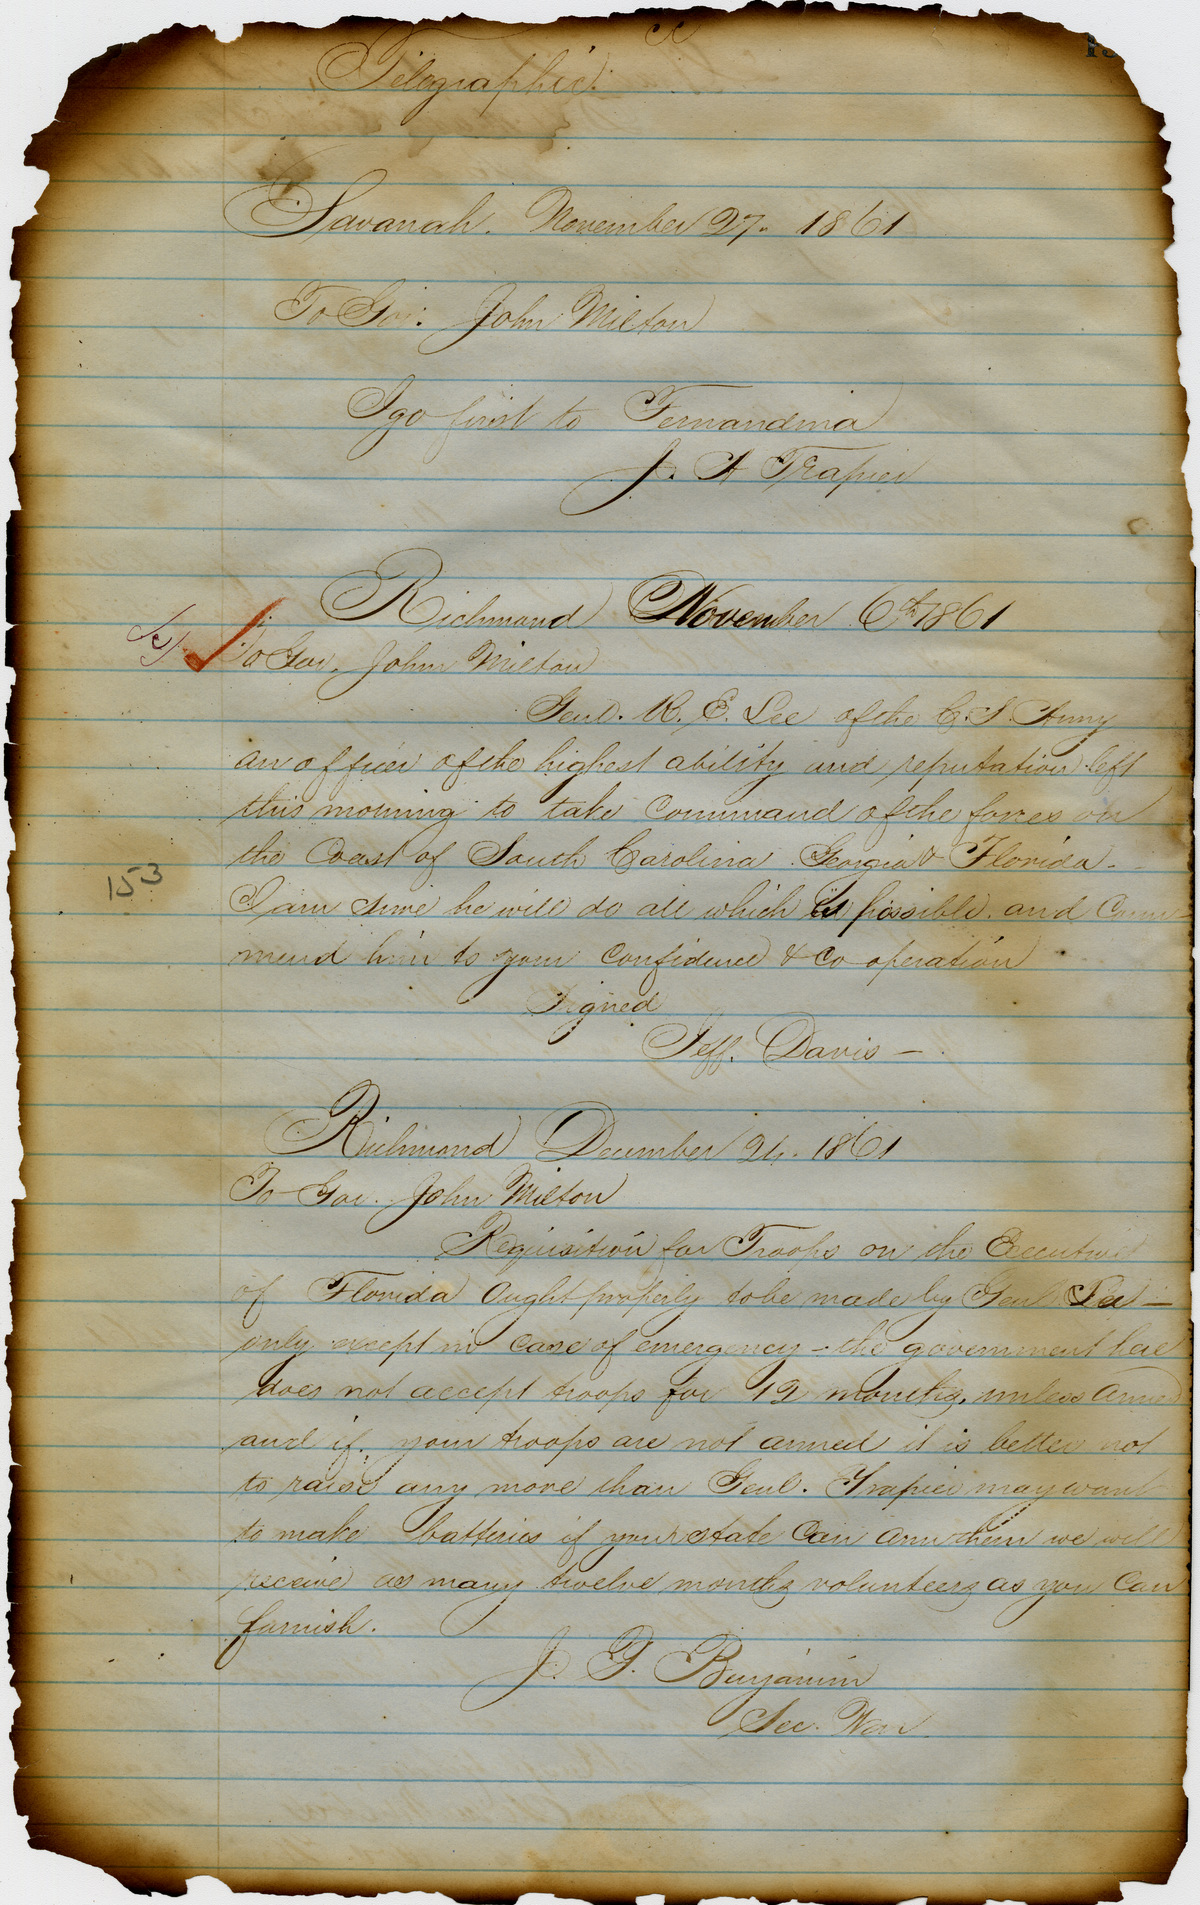 Telegraphic.
Savanah. November 27. 1861
To Gov. John Milton
I go first to Fernandina
J. H Trapier
Richmond November 6th 1861
To Gov. John Milton
Genl. R. E. Lee of the C. S. Army
an officer of the highest ability and reputation left
this morning to take command of the forces on
the Coast of South Carolina Georgia & Florida -
153
I am sure he will do all which is possible. and Com-
mend him to your confidence & Co operation
Signed
Jeff. Davis -
Richmond December 24. 1861
To Gov. John Milton
Requisition for Troops on the Executive
of Florida Ought properly to be made by Genl Lee -
only except in case of emergency - the government here
does not accept troops for 12 months, unless armed
and if your troops are not armed it is better not
to raise any more than Genl. Trapier may want
to make batteries if your state Can arm them we will
receive as many twelve months volunteers as you Can
furnish.
J. P. Benjamin
Sec. War